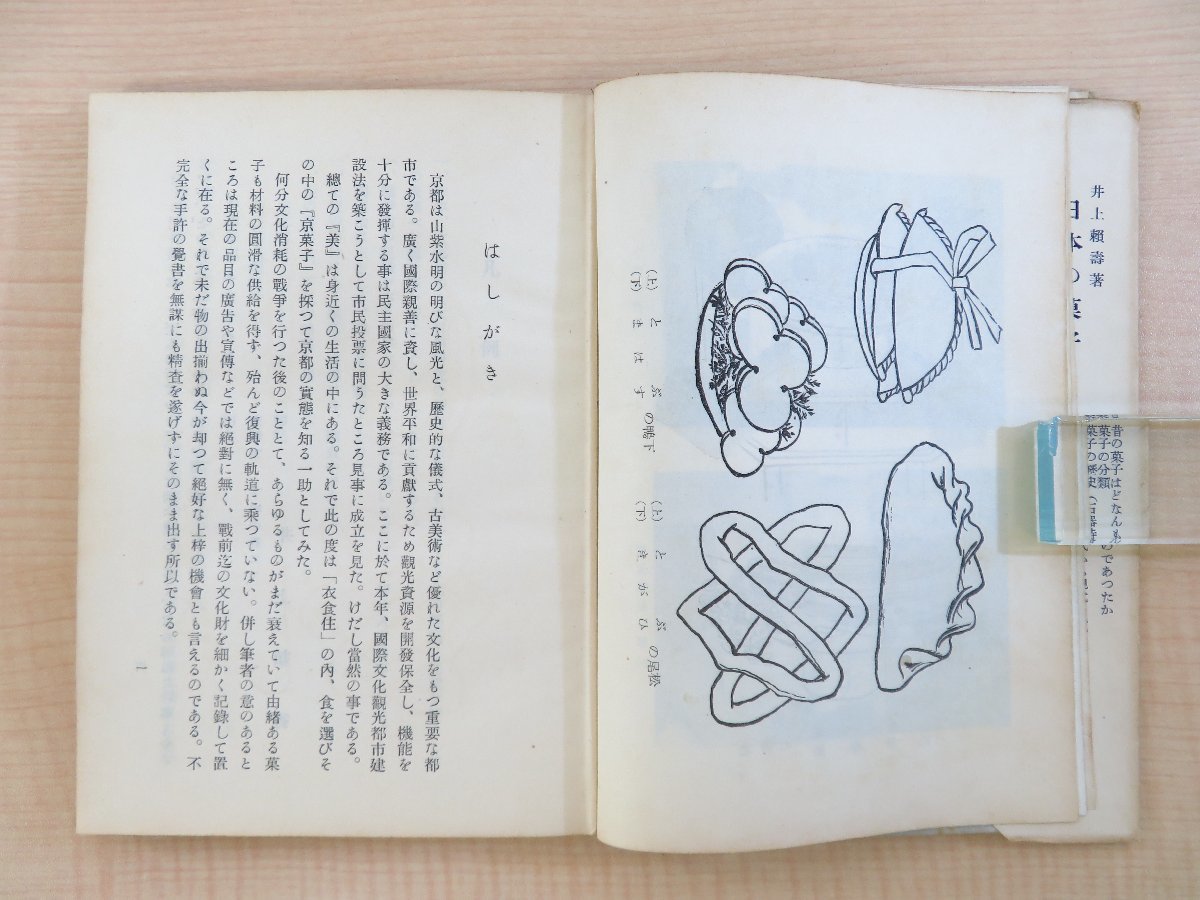 井上賴壽著
日本の菓子
昔の菓子はどんなものであつたか
菓子の分類
菓子の歴史
(上) とぶの鴨下
(下) まはす
(上) とぶの尾松
(下) まがひ
はしがき
京都は山紫水明の明びな風光と、歷史的な儀式、古美術など優れた文化をもつ重要な都
市である。廣く國際親善に資し、世界平和に貢獻するため觀光資源を開發保全し、機能を
十分に發揮する事は民主國家の大きな義務である。ここに於て本年、國際文化觀光都市建
設法を築こうとして市民投票に問うたところ見事に成立を見た。けだし當然の事である。
總ての『美』は身近くの生活の中にある。それで此の度は「衣食住」の內、食を選びそ
の中の『京菓子』を採つて京都の實態を知る一助としてみた。
何分文化消耗の戰爭を行つた後のこととて、あらゆるものがまだ衰えていて由緖ある菓
子も材料の圓滑な供給を得ず、殆んど復興の軌道に乘つていない。併し筆者の意のあると
ころは現在の品目の廣吿や宣傳などでは絕對に無く、戰前迄の文化財を細かく記錄して置
くに在る。それで未だ物の出揃わぬ今が却つて絕好な上梓の機會とも言えるのである。不
完全な手許の覺書を無謀にも精査を遂げずにそのまま出す所以である。
一